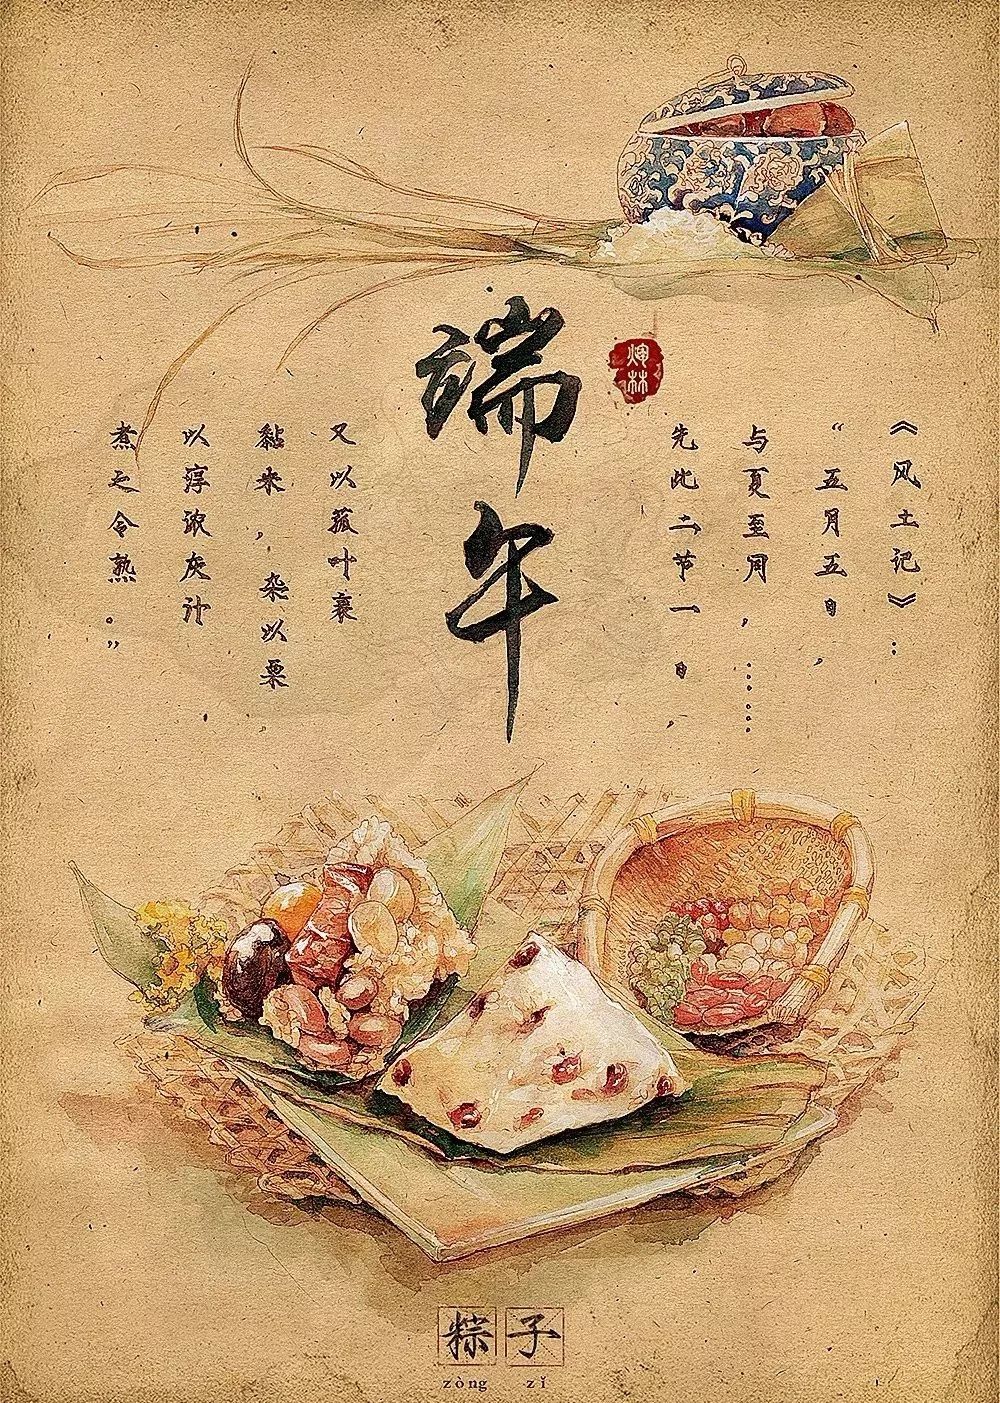 《风土记》：
“五月五日，
与夏至同，……
先此二节一日，
端午
又以菰叶裹
黏米，杂以栗
以淳浓灰汁
煮之令熟。”
粽子
zòng zǐ